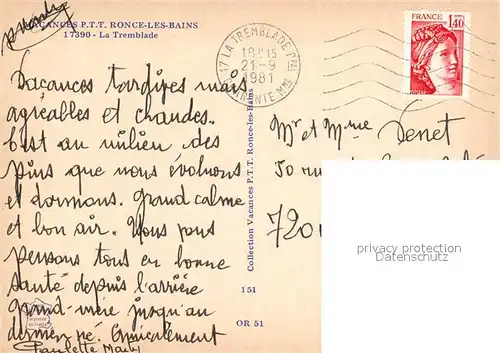 VACANCES P.T.T. RONCE-LES-BAINS
17390 - La Tremblade
17 LA TREMBLADE PPAL
18H15
21-9
1981
CHARENTE-MME
FRANCE
1,40
Vacances tardives mais
agréables et chaudes.
C'est au milieu des
pins que nous évoluons
et dormons. Grand calme
et bon air. Nous vous
pensons tous en bonne
santé depuis l'arrière
grand-mère jusqu'au
dernier né. Amicalement
Paulette
Collection Vacances P.T.T. Ronce-les-Bains
151
OR 51
Mr et Mme Denet
50 rue
7201
privacy protection
ansichtskartenhandel.de